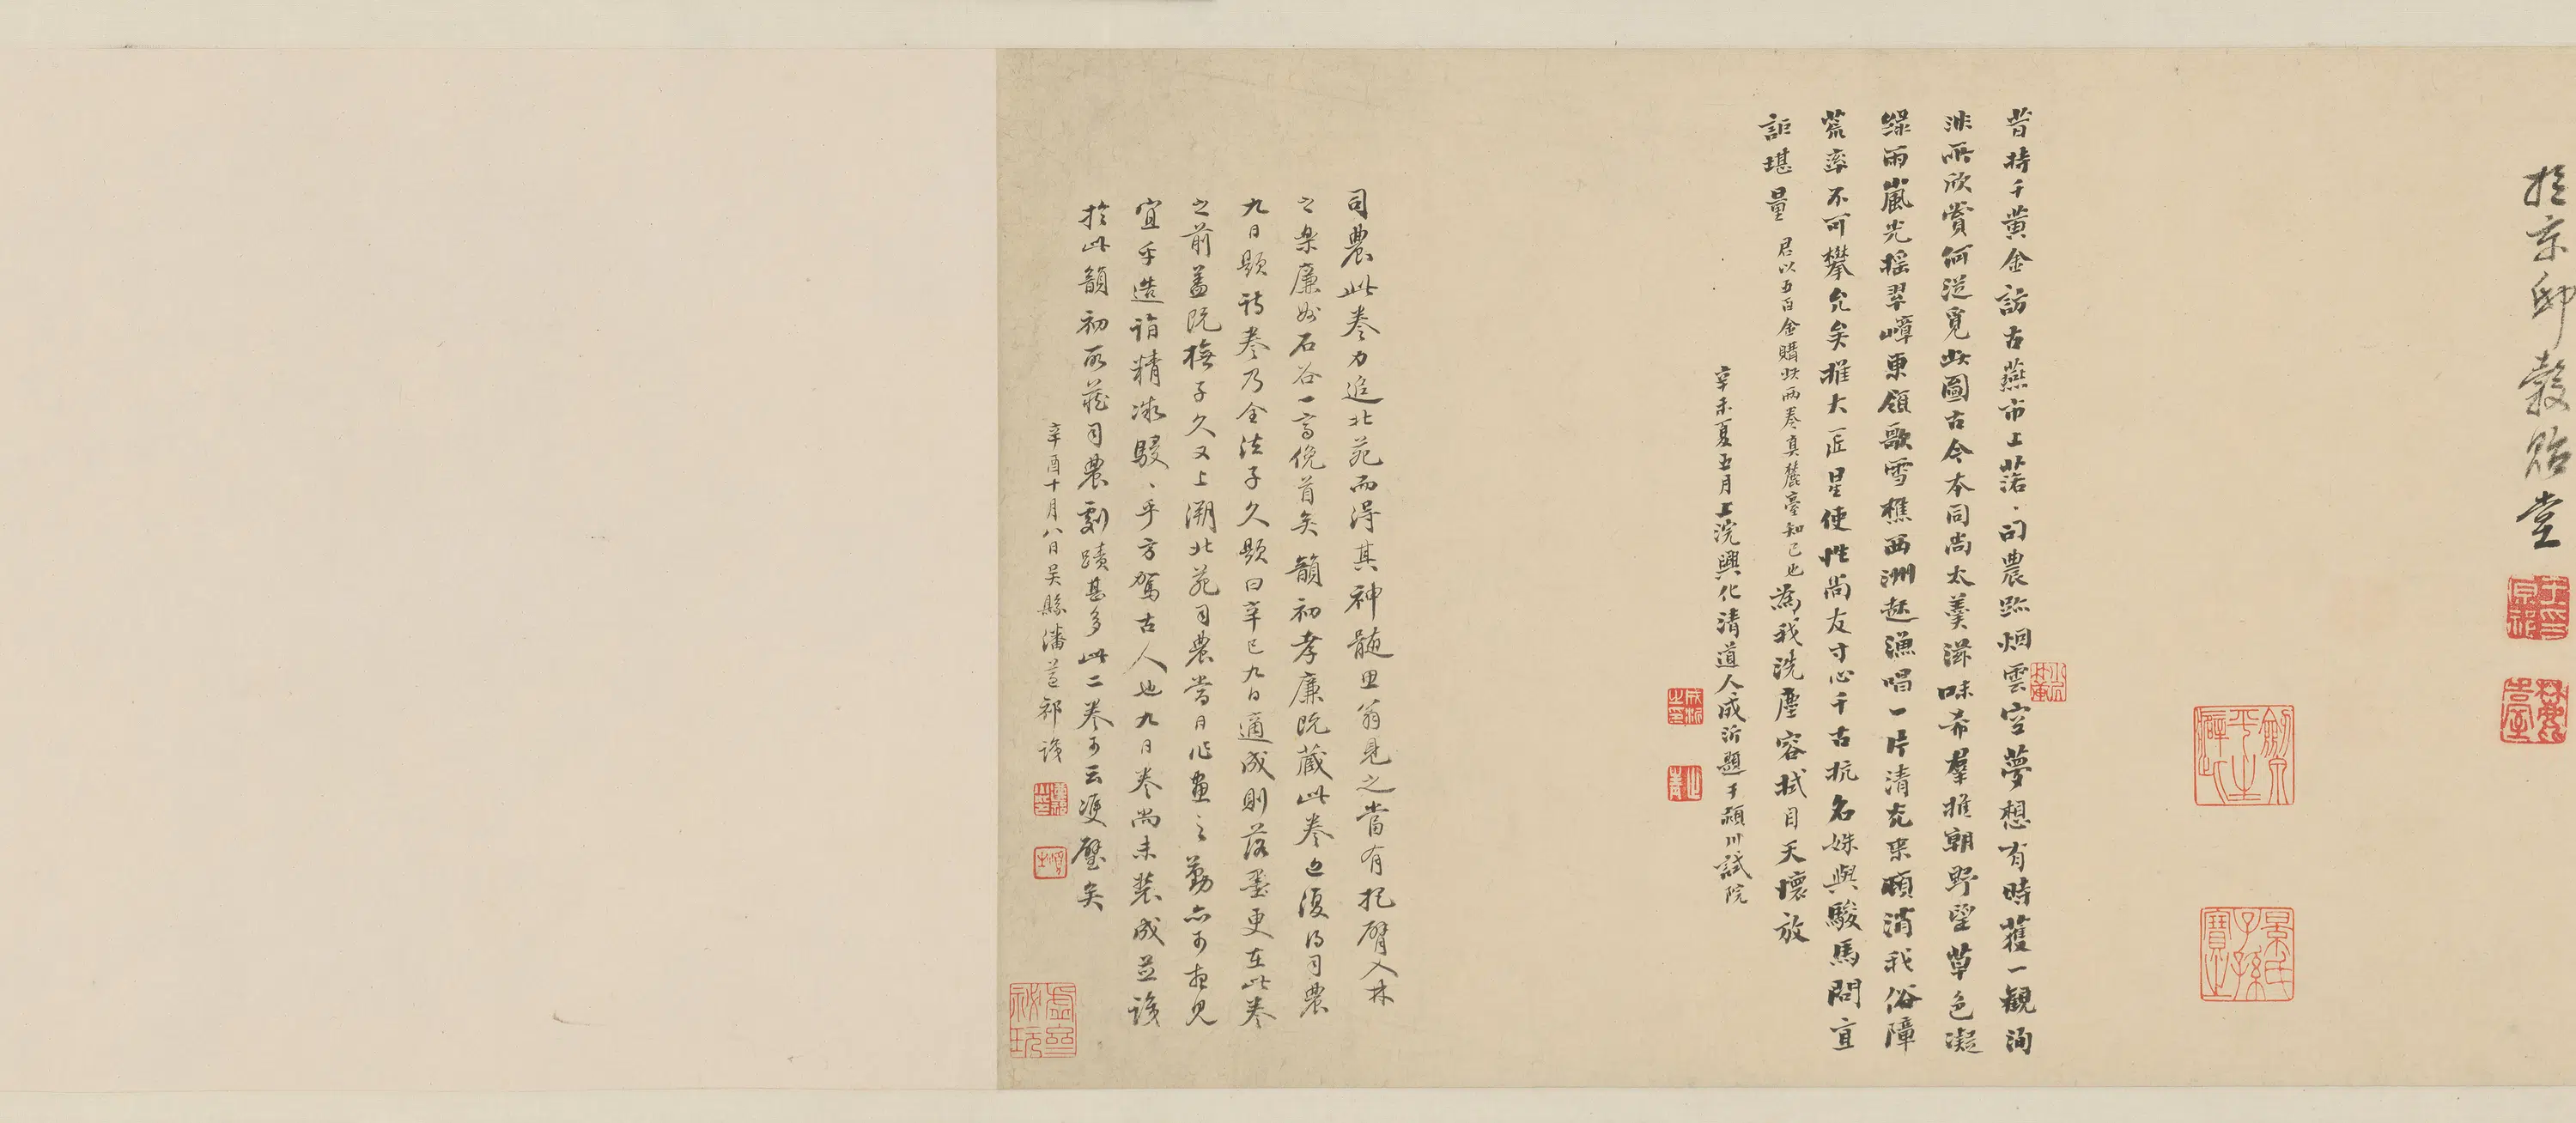 於京邸穀詒堂
昔持千黃金訪古燕市上落落司農跡烟雲空夢想有時獲一觀洵
非所欣賞何從覓此圖古今本同尚太羹滋味希羣推朝野望草色凝
綠雨嵐光搖翠嶂東領歌雪樵西洲起漁唱一片清充來頓消我俗障
荒率不可攀允矣推大匠星使性尚友寸心千古抗名姝與駿馬問宜
詎堪量君以五百金購此兩卷真麓臺知己也為我洗塵容拭目天懷放
辛未夏五月上浣興化清道人成沂題于潁川試院
司農此卷力追北苑而得其神髓思翁見之當有把臂入林
之樂廉州石谷一當俛首矣韻初孝廉既藏此卷近復得司農
九日題詩卷乃全法子久題曰辛巳九日適成則落墨更在此卷
之前蓋既橅子久又上溯北苑司農當日作畫之勤亦可想見
宜乎造詣精深駸駸乎方駕古人也九日卷尚未裝成並識
於此韻初所藏司農劇蹟甚多此二卷可云雙璧矣
辛酉十月八日吳縣潘遵祁識